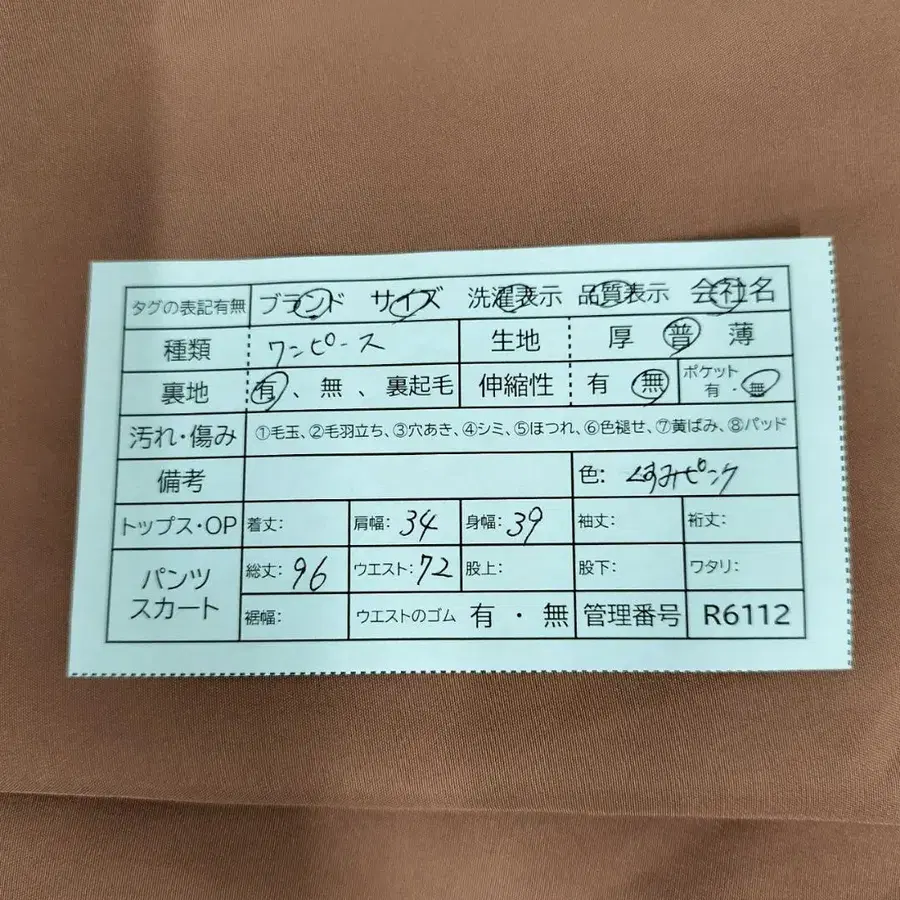 タグの表記有無 ブランド サイズ 洗濯表示 品質表示 会社名
種類 ワンピース 生地 厚 普 薄
裏地 有、無、裏起毛 伸縮性 有 無 ポケット 有・無
汚れ・傷み ①毛玉、②毛羽立ち、③穴あき、④シミ、⑤ほつれ、⑥色褪せ、⑦黄ばみ、⑧パッド
備考 色: くすみピンク
トップス・OP 着丈: 肩幅: 34 身幅: 39 袖丈: 裄丈:
パンツ スカート 総丈: 96 ウエスト: 72 股上: 股下: ワタリ:
裾幅: ウエストのゴム 有・無 管理番号 R6112